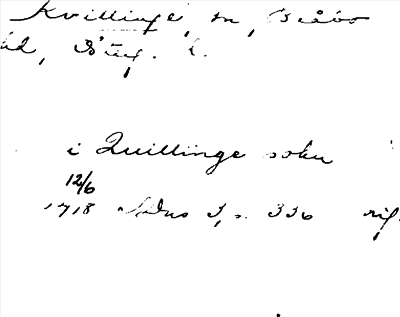 Kvillinge, sn, Bråbo
hd, Ög. l.
i Quillinge sokn
12/6
1718 Ådns 3, s. 336 rif.